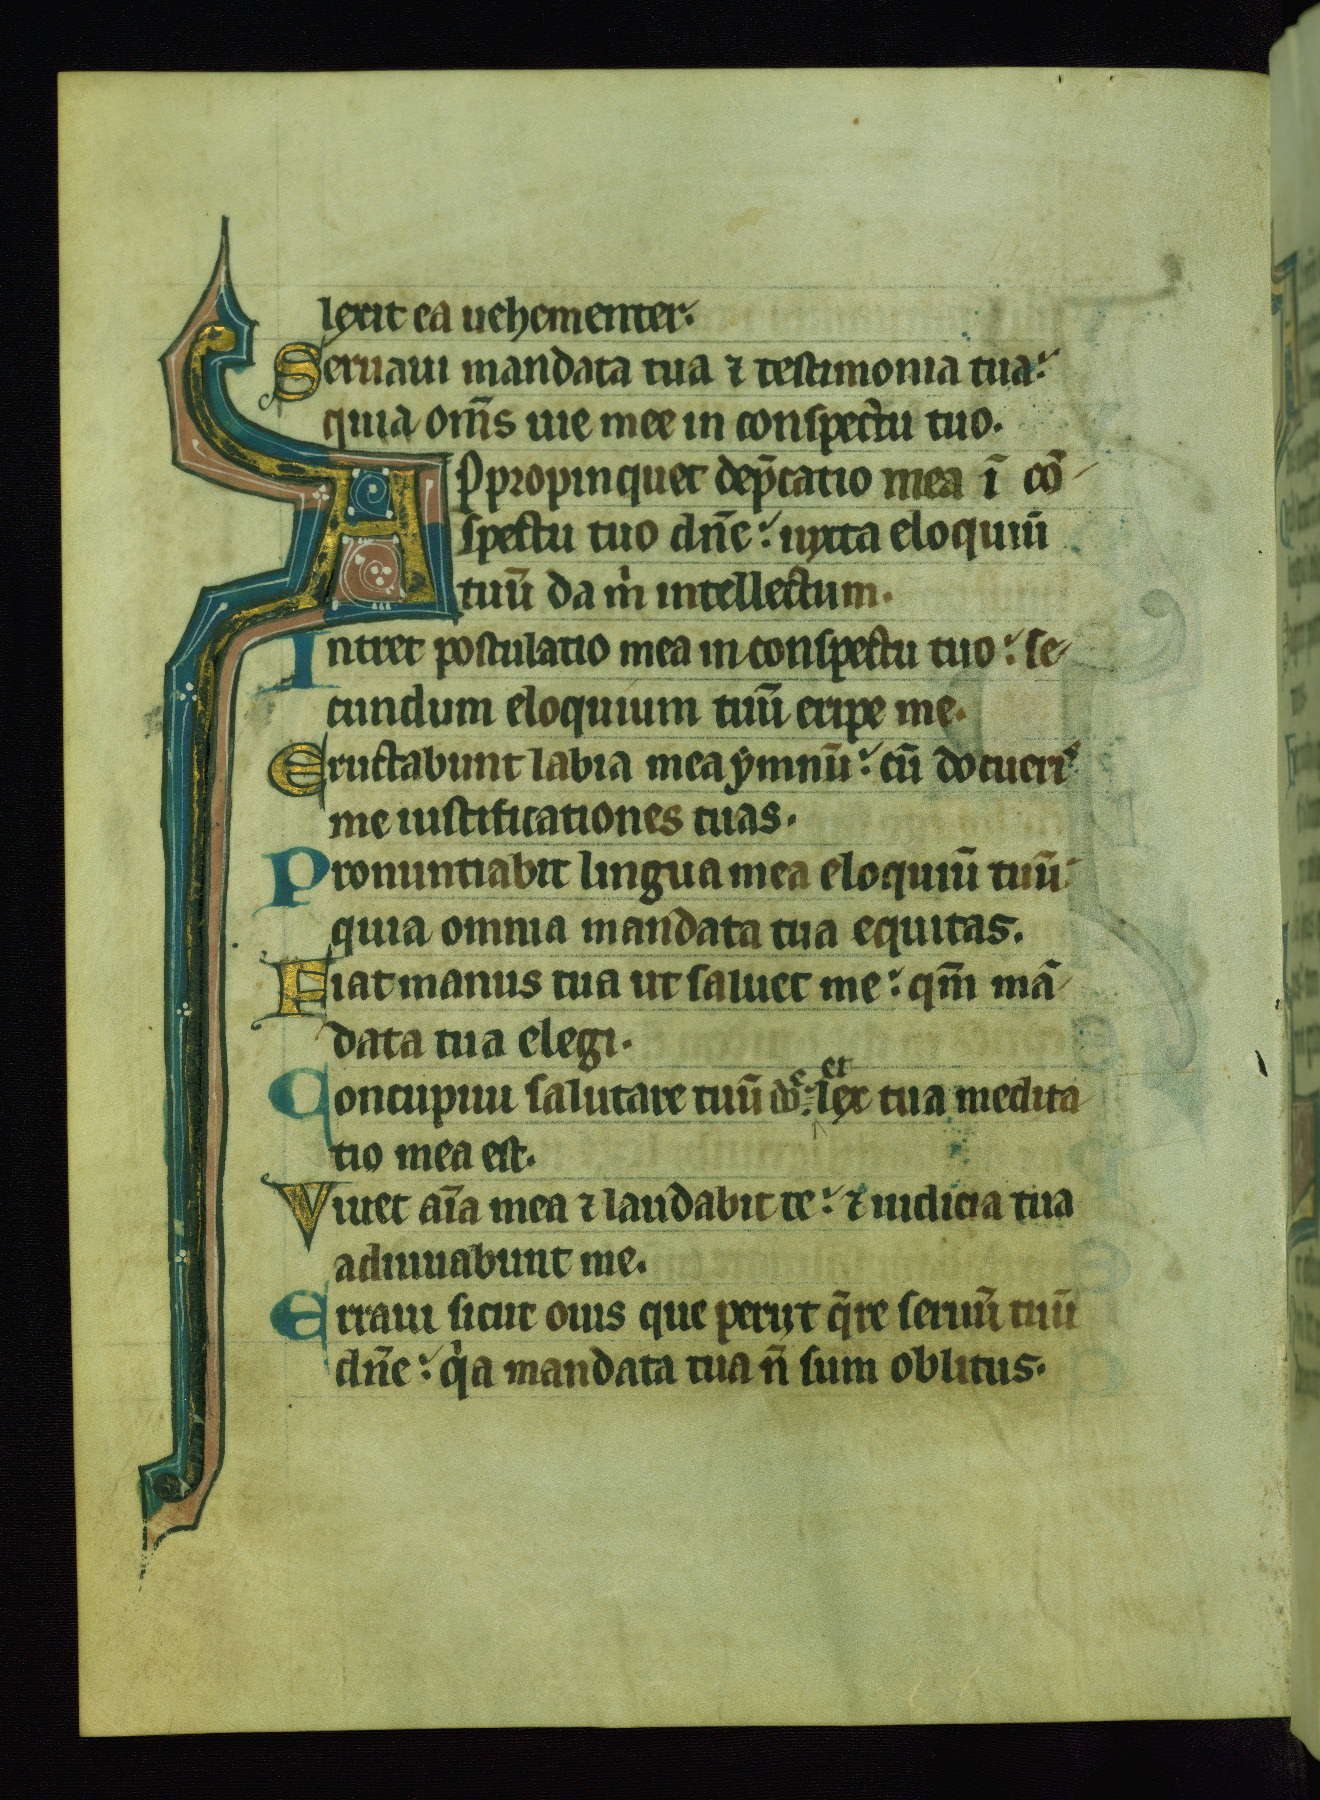 lexit ea uehementer.
Seruaui mandata tua ⁊ testimonia tua:
quia om̄s uie mee in conspectu tuo.
Appropinquet dep̄catio mea ī cō
spectu tuo dn̄e: iuxta eloquiū
tuū da m̓ intellectum.
Intret postulatio mea in conspectu tuo: se
cundum eloquium tuū eripe me.
Eructabunt labia mea ẏmnū: cū docueris
me iustificationes tuas.
Pronuntiabit lingua mea eloquiū tuū:
quia omnia mandata tua equitas.
Fiat manus tua ut saluet me: qm̄ mā
data tua elegi.
Concupiui salutare tuū dn̄e: et lex tua medita
tio mea est.
Viuet aīa mea ⁊ laudabit te: ⁊ iudicia tua
adiuuabunt me.
Erraui sicut ouis que perijt q̄re seruū tuū
dn̄e: q̓a mandata tua n̄ sum oblitus.